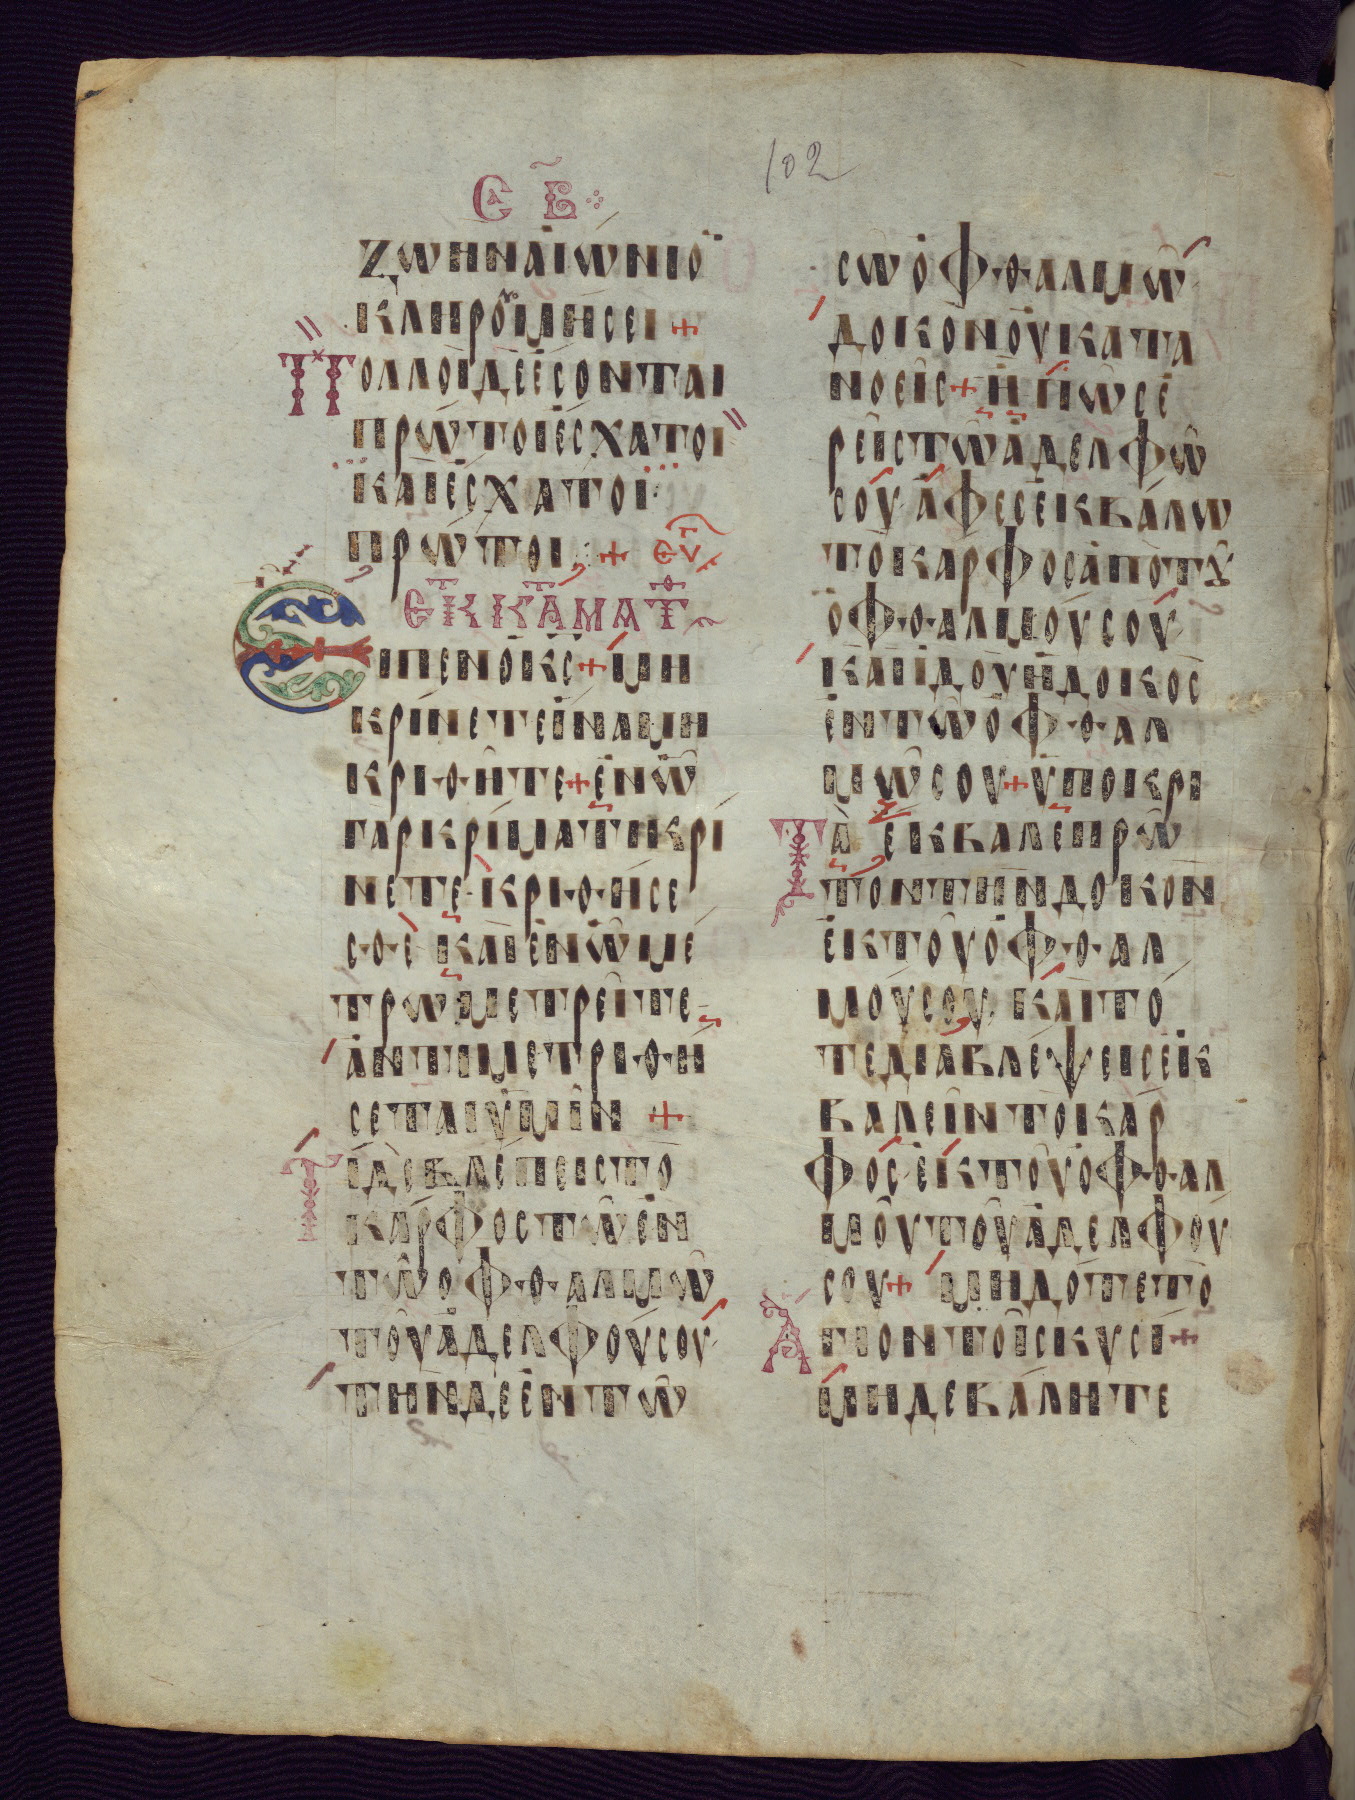 102
СА Β
ζωὴν αἰώνιο
κληρονμήσει +
Πολλοὶ δὲ ἔσονται
πρῶτοι ἔσχατοι
καὶ ἔσχατοι
πρῶτοι + ευ
εκ κ μ ματ
Εἶπεν ὁ κς + μὴ
κρίνετε ἵνα μὴ
κριθῆτε + ἐν ᾧ
γὰρ κρίματι κρί
νετε κριθήσε
σθε καὶ ἐν ᾧ μέ
τρω μετρεῖτε
ἀντιμετριθή
σεται ὑμῖν +
Τί δὲ βλέπεις το
κάρφος τω ἐν
τῷ ὀφθαλμῷ
τοῦ ἀδελφοῦ σου
τὴν δὲ ἐν τῷ
σῶ ὀφθαλμῶ
δοκὸν οὐ κατα
νοεῖς + ἢ πῶς ἐ
ρεῖς τῶ ἀδελφῶ
σου ἄφες ἐκβάλω
το κάρφος ἀπὸ τοῦ
ὀφθαλμοῦ σου
καὶ ἰδοὺ ἡ δοκὸς
ἐν τῶ ὀφθαλ
μῶ σου + ὑποκρι
Τὰ ἔκβαλε πρῶ
τον τὴν δοκὸν
ἐκ τοῦ ὀφθαλ
μοῦ σου καὶ τό
τε διαβλέψεις ἐκ
βαλεῖν το κάρ
φος ἐκ τοῦ ὀφθαλ
μοῦ τοῦ ἀδελφοῦ
σου + μὴ δότε τὸ
Ἅγιον τοῖς κυσὶ +
μηδὲ βάλητε